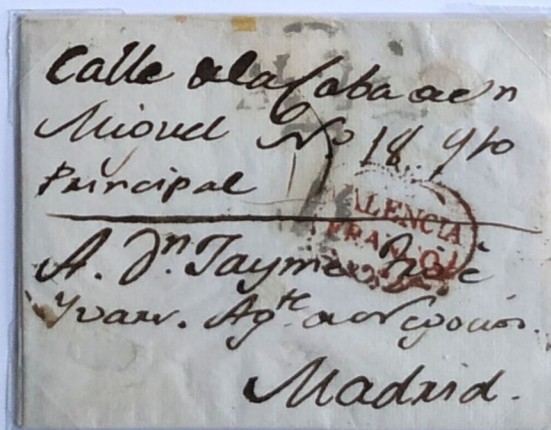 Calle de la Caba de Sn
Miguel No 18 qto
Principal
VALENCIA
FRANCO
A. Dn Jayme
Agte de Negocios.
Madrid.